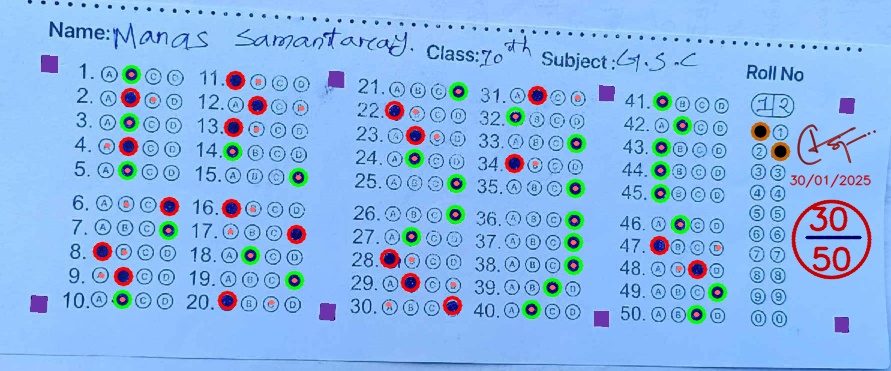 Name: Manas Samantaray. Class: 10th Subject: G.S.C Roll No
12
1. A B C D
2. A B C D
3. A B C D
4. A B C D
5. A B C D
6. A B C D
7. A B C D
8. A B C D
9. A B C D
10. A B C D
11. A B C D
12. A B C D
13. A B C D
14. A B C D
15. A B C D
16. A B C D
17. A B C D
18. A B C D
19. A B C D
20. A B C D
21. A B C D
22. A B C D
23. A B C D
24. A B C D
25. A B C D
26. A B C D
27. A B C D
28. A B C D
29. A B C D
30. A B C D
31. A B C D
32. A B C D
33. A B C D
34. A B C D
35. A B C D
36. A B C D
37. A B C D
38. A B C D
39. A B C D
40. A B C D
41. A B C D
42. A B C D
43. A B C D
44. A B C D
45. A B C D
46. A B C D
47. A B C D
48. A B C D
49. A B C D
50. A B C D
1
2
3 3
4 4
5 5
6 6
7 7
8 8
9 9
0 0
30/01/2025
30
50